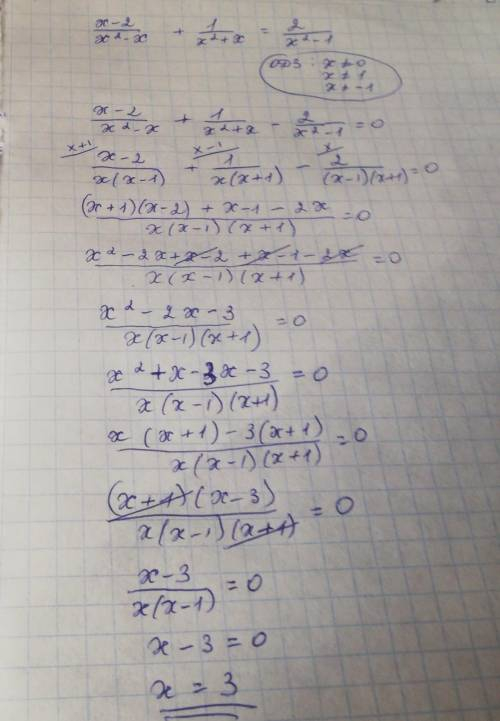 (x-2)/(x²-x) + 1/(x²+x) = 2/(x²-1)
ОДЗ: x ≠ 0
x ≠ 1
x ≠ -1
(x-2)/(x²-x) + 1/(x²+x) - 2/(x²-1) = 0
x+1/ (x-2)/(x(x-1)) + x-1/ 1/(x(x+1)) - x/ 2/((x-1)(x+1)) = 0
((x+1)(x-2) + x-1 - 2x)/(x(x-1)(x+1)) = 0
(x²-2x+x-2+x-1-2x)/(x(x-1)(x+1)) = 0
(x²-2x-3)/(x(x-1)(x+1)) = 0
(x²+x-3x-3)/(x(x-1)(x+1)) = 0
(x(x+1)-3(x+1))/(x(x-1)(x+1)) = 0
((x+1)(x-3))/(x(x-1)(x+1)) = 0
(x-3)/(x(x-1)) = 0
x-3 = 0
x = 3